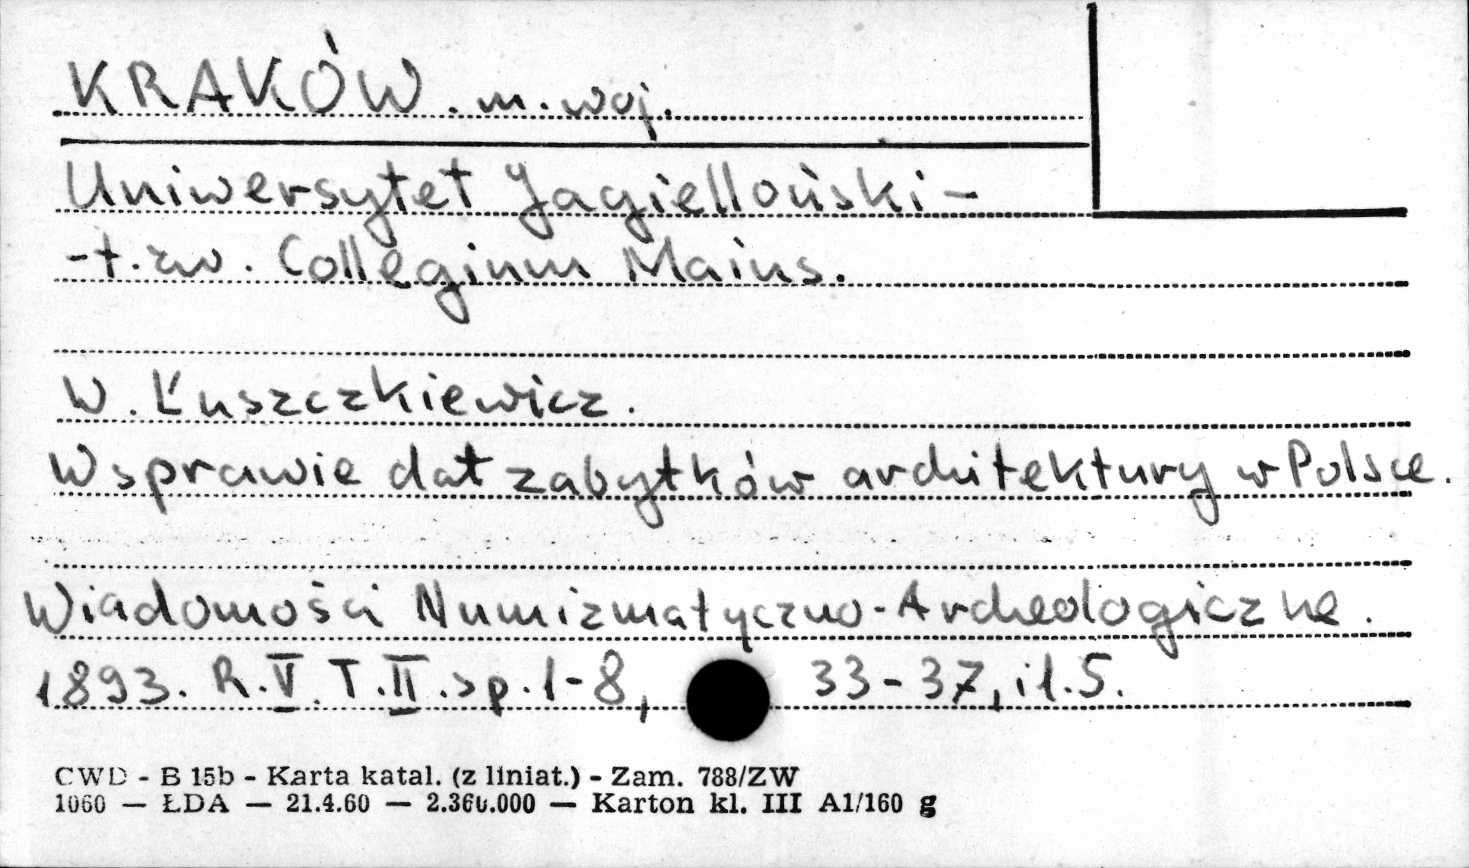 KRAKÓW. m. woj.
Uniwersytet Jagielloński -
- t. zw. Collegium Maius.
W. Łuszczkiewicz.
W sprawie dat zabytków architektury w Polsce.
Wiadomości Numizmatyczno-Archeologiczne.
1893. R. V. T. II. sp. 1-8, 33-37, il. 5.
CWD - B 15b - Karta katal. (z liniat.) - Zam. 788/ZW
1060 — ŁDA — 21.4.60 — 2.360.000 — Karton kl. III A1/160 g